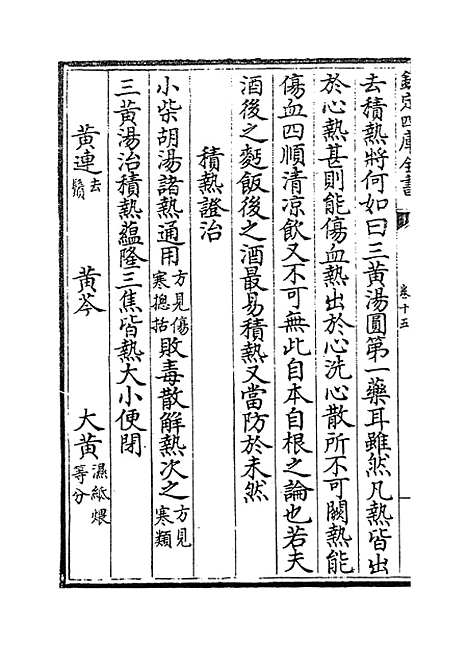 欽定四庫全書
卷十五
去積熱將何如曰三黃湯圓第一藥耳雖然凡熱皆出
於心熱甚則能傷血熱出於心洗心散所不可闕熱能
傷血四順清凉飲又不可無此自本自根之論也若夫
酒後之麪飯後之酒最易積熱又當防於未然
積熱證治
小柴胡湯諸熱通用方見傷寒總括敗毒散解熱次之方見寒類
三黃湯治積熱蘊隆三焦皆熱大小便閉
黃連去鬚 黃芩 大黃濕紙煨等分